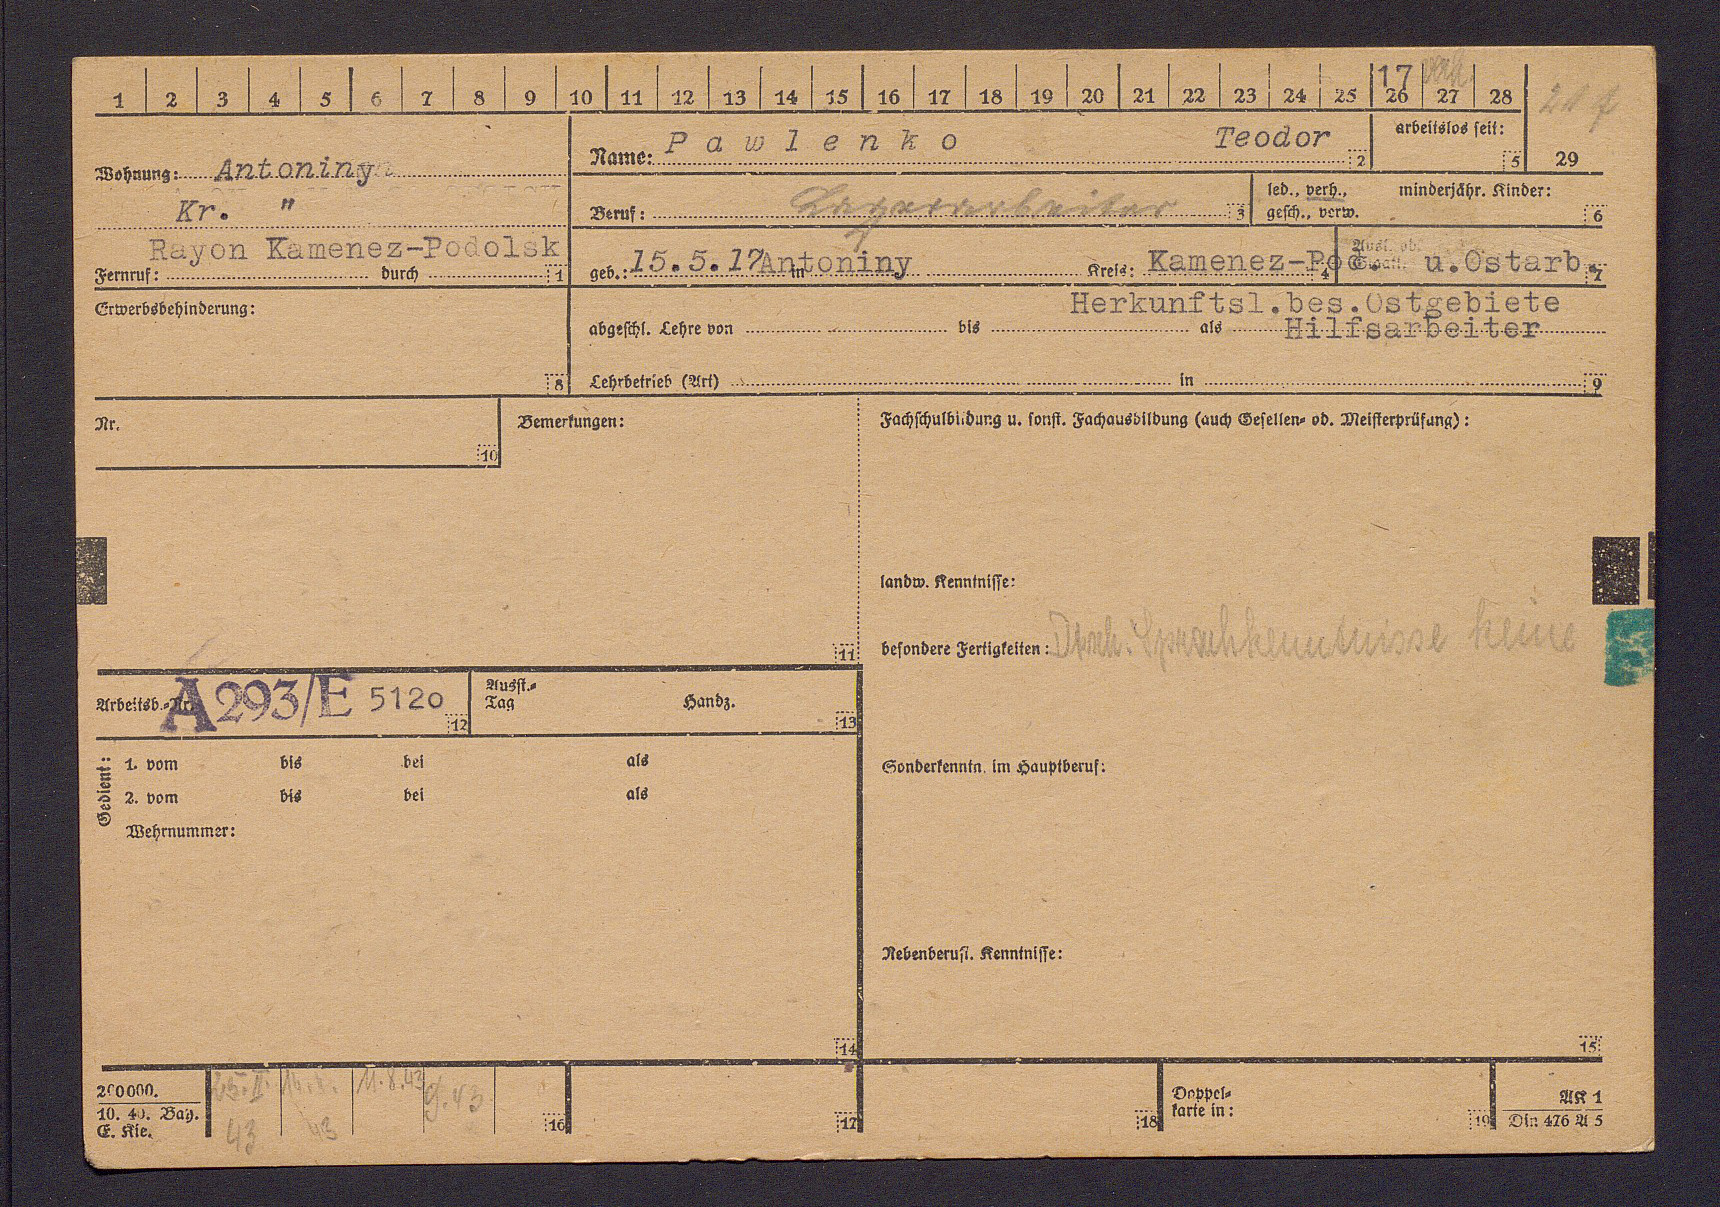 1 2 3 4 5 6 7 8 9 10 11 12 13 14 15 16 17 18 19 20 21 22 23 24 25 26 27 28
17
Name: Pawlenko Teodor 2
arbeitslos seit: 5
29
Wohnung: Antoniny
Kr. "
Rayon Kamenez-Podolsk
Fernruf: durch 1
Beruf: Lagerarbeiter 3
led., verh., minderjähr. Kinder:
gesch., verw. 6
geb.: 15.5.17 in Antoniny Kreis: Kamenez-Pod. 4 u.Ostarb. 7
Herkunftsl.bes.Ostgebiete
Erwerbsbehinderung: 8
abgeschl. Lehre von bis als Hilfsarbeiter
Lehrbetrieb (Art) in 9
Nr. 10
Bemerkungen: 11
Fachschulbildung u. sonst. Fachausbildung (auch Gesellen- od. Meisterprüfung):
landw. Kenntnisse:
besondere Fertigkeiten: Dtsch. Sprachkenntnisse keine
Arbeitsb.-Nr. A 293/E 5120 12
Ausst.-
Tag Handz. 13
Gedient:
1. vom bis bei als
2. vom bis bei als
Wehrnummer:
14
Sonderkenntn. im Hauptberuf:
Nebenberufl. Kenntnisse:
15
200000.
10. 40. Bay.
E. Kie.
25.II. 43
43
11.8.43
9.43
16
17
18
Doppel-
karte in: 19
AK 1
Din 476 A 5